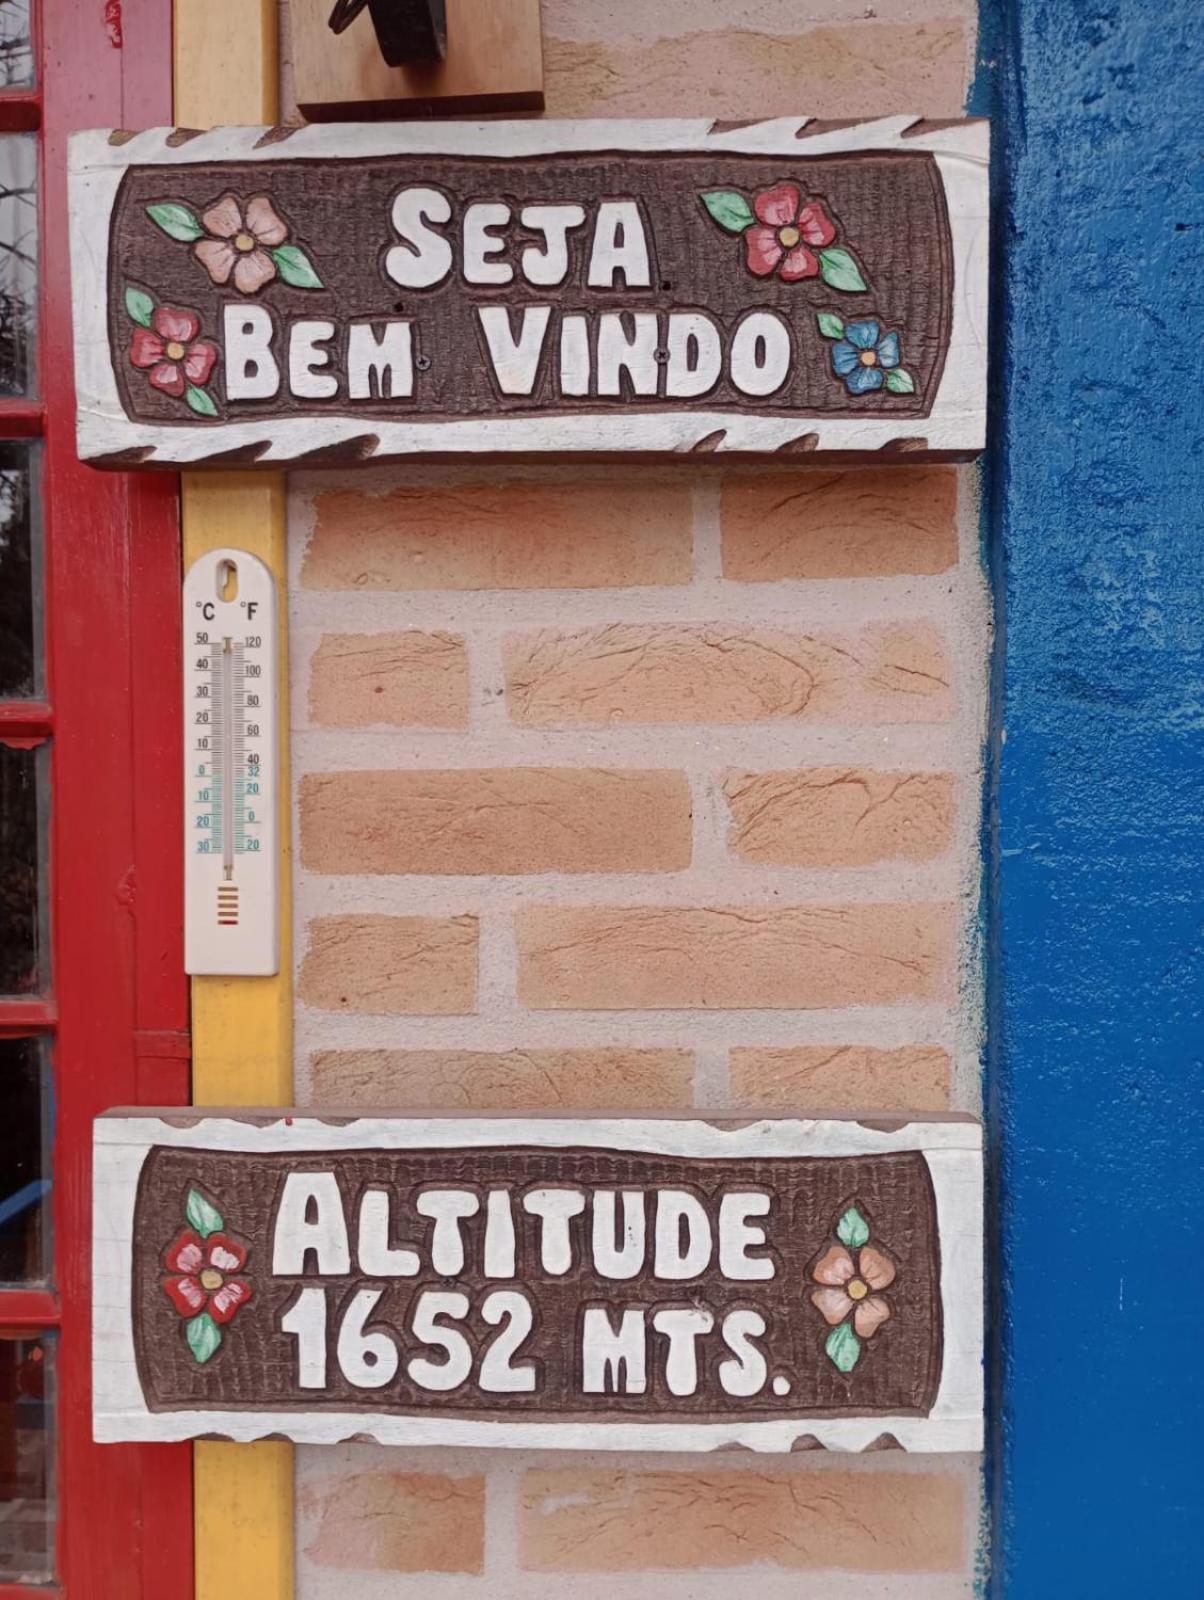 SEJA
BEM VINDO
°C °F
50 120
40 100
30 80
20 60
10 40
0 32
10 20
20 0
30 20
ALTITUDE
1652 MTS.